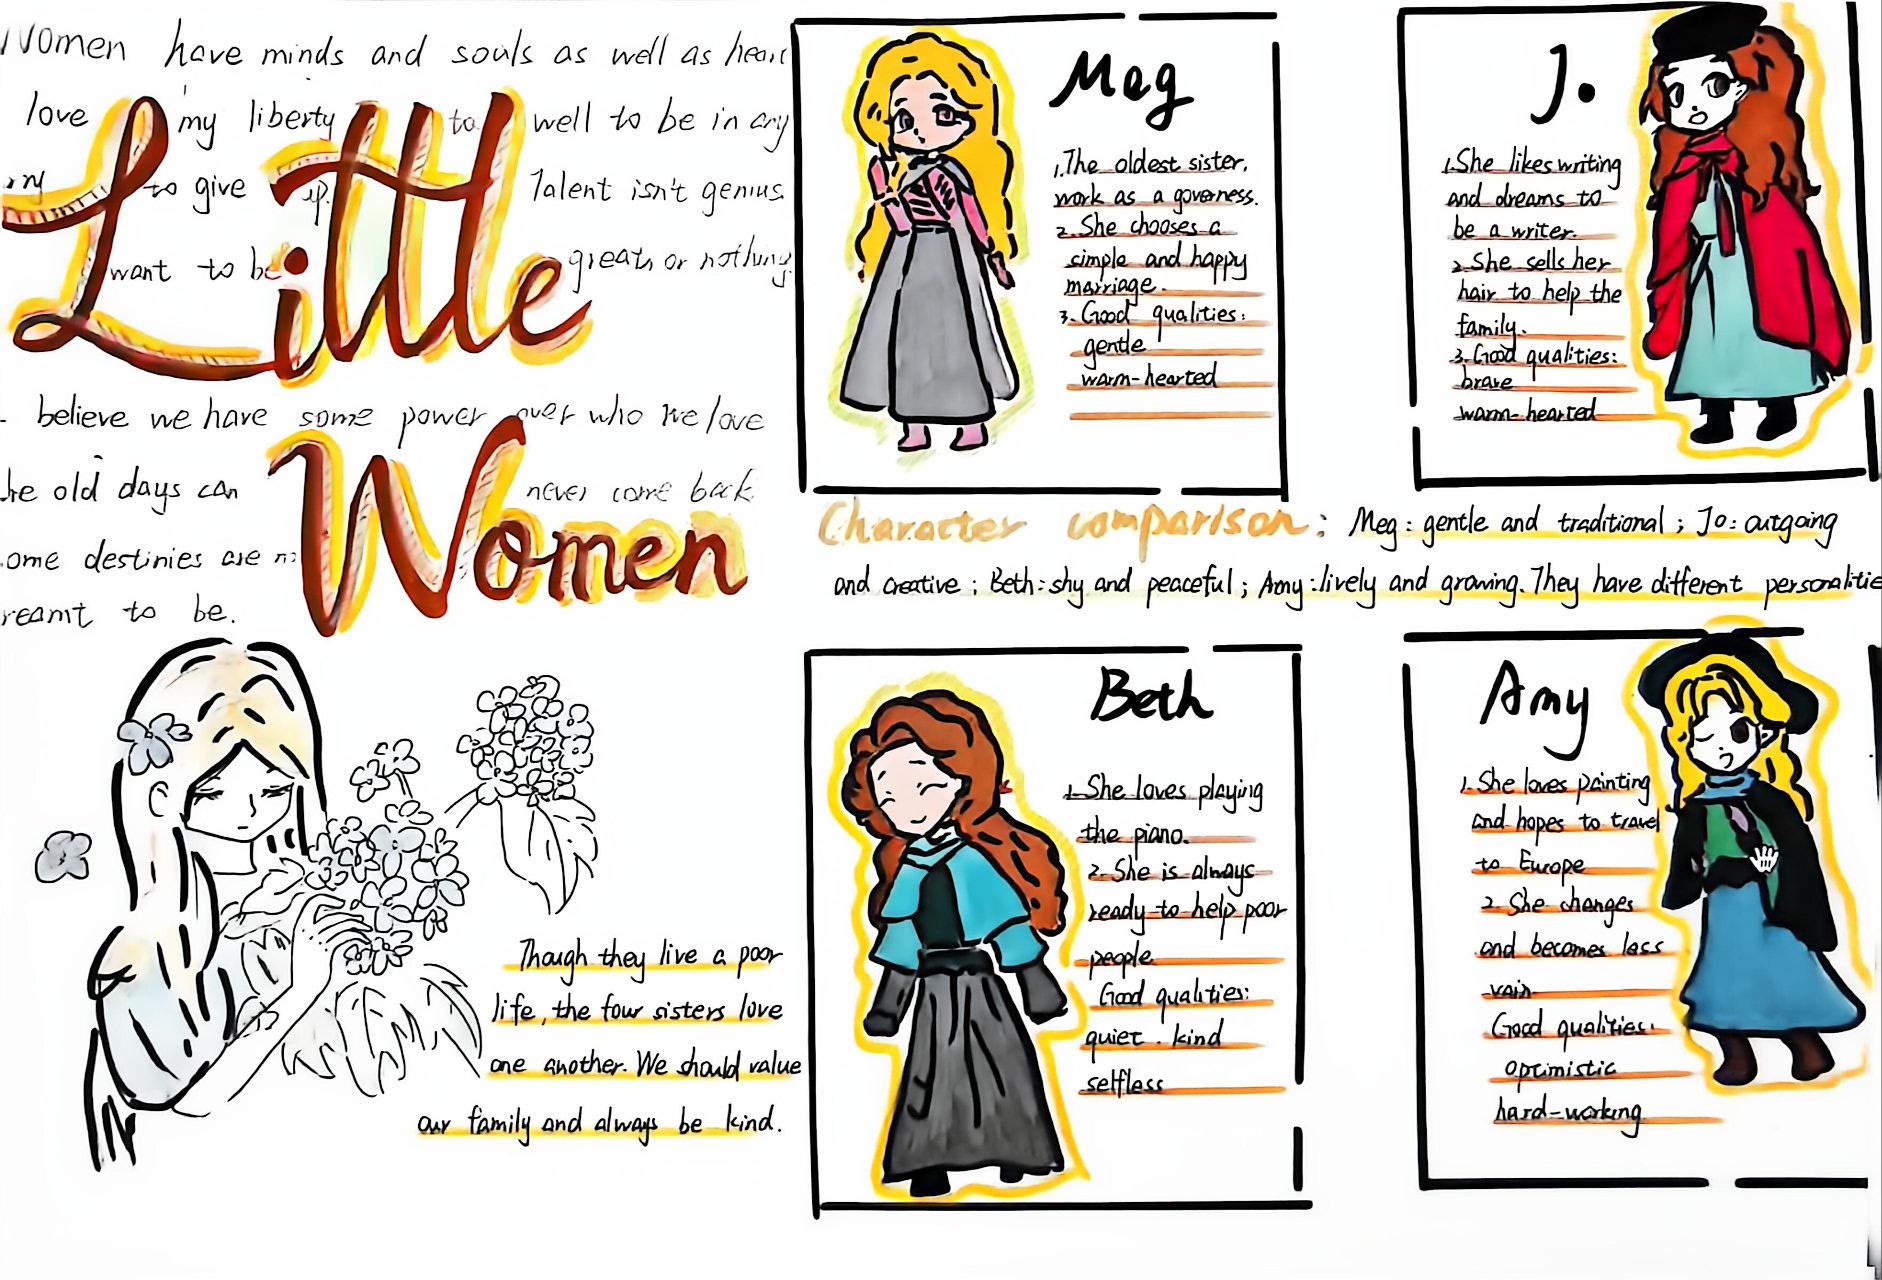 Women have minds and souls as well as heart
love my liberty to well to be in any
to give up. Talent isn't genius.
want to be great, or nothing
Little
believe we have some power over who we love
he old days can never come back
ome destinies are
reamt to be.
Women
Though they live a poor
life, the four sisters love
one another. We should value
our family and always be kind.
Meg
1. The oldest sister,
work as a governess.
2. She chooses a
simple and happy
marriage.
3. Good qualities:
gentle
warm-hearted
Jo
1. She likes writing
and dreams to
be a writer.
2. She sells her
hair to help the
family.
3. Good qualities:
brave
warm-hearted
Character comparison: Meg: gentle and traditional; Jo: outgoing
and creative; Beth: shy and peaceful; Amy: lively and growing. They have different personalitie
Beth
1. She loves playing
the piano.
2. She is always
ready to help poor
people.
Good qualities:
quiet. kind
selfless
Amy
1. She loves painting
and hopes to travel
to Europe
2. She changes
and becomes less
vain.
Good qualities:
optimistic
hard-working